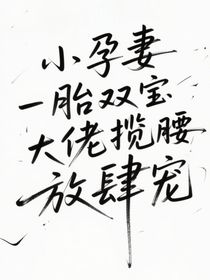 小孕妻
一胎双宝
大佬揽腰
放肆宠